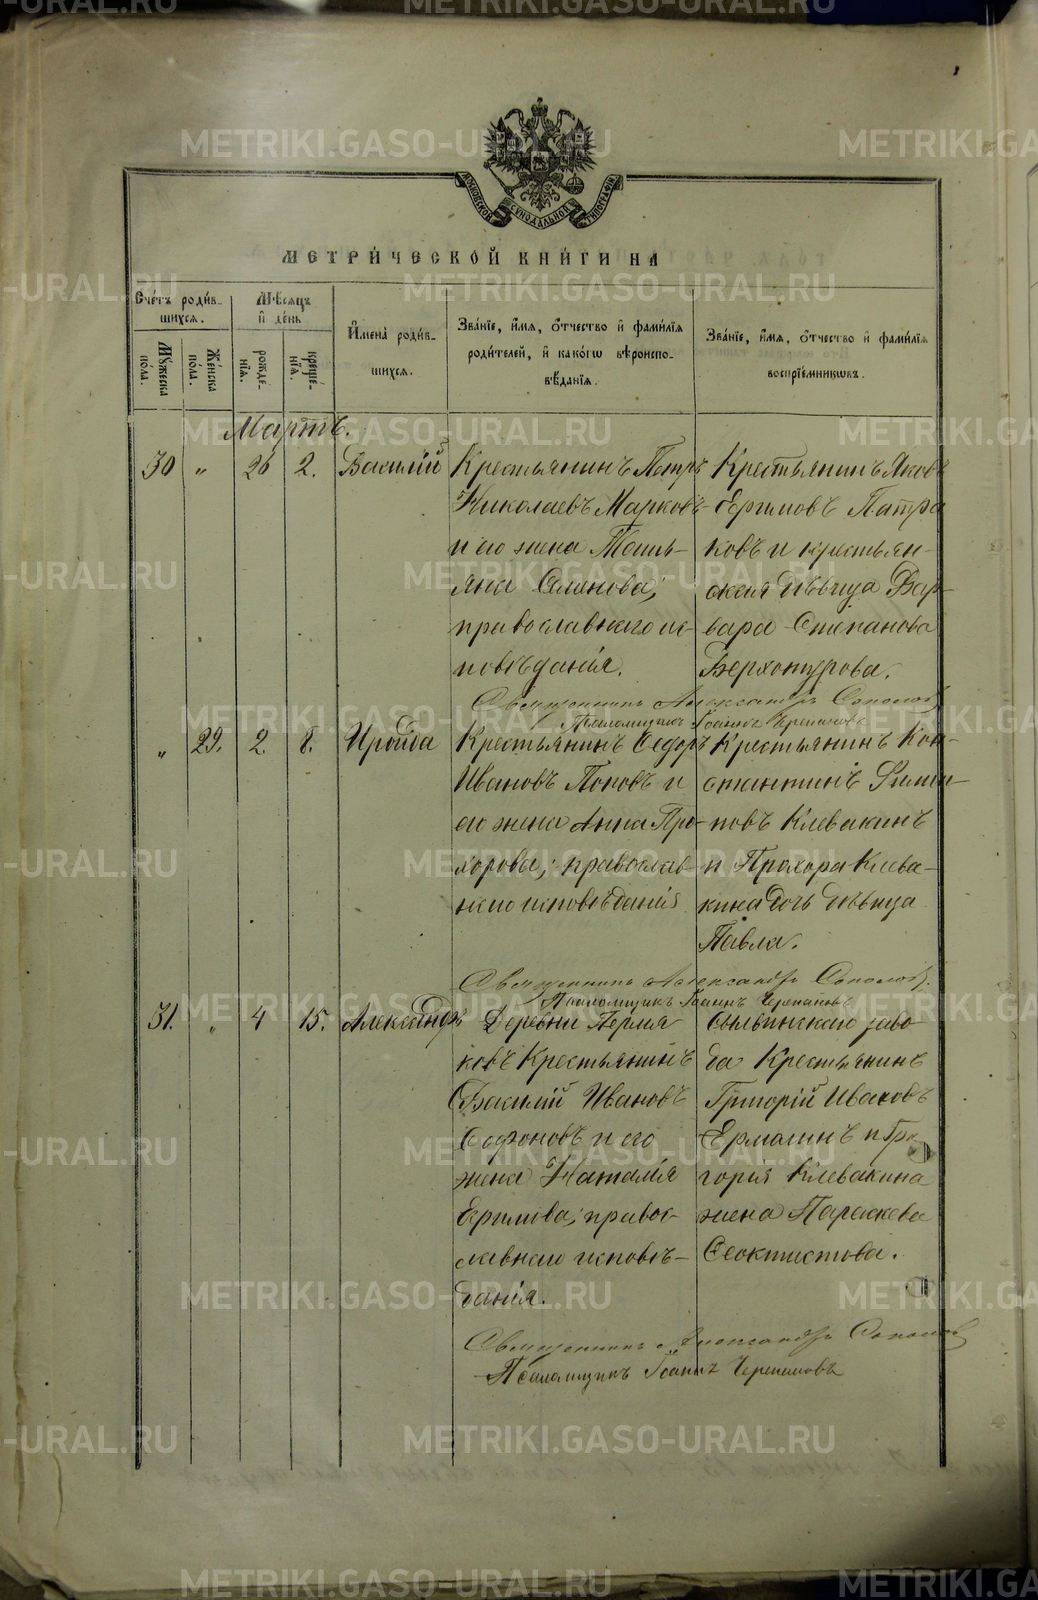 METRIKI.GASO-URAL.RU
МОСКОВСКОЙ СѴНОДАЛЬНОЙ ТИПОГРАФІИ
МЕТРИ́ЧЕСКОЙ КНИ́ГИ НА
Сче́тъ роди́в-
шихсѧ.
Мѣ́сѧцъ
и҆ де́нь
И҆мена̀ роди́в-
шихсѧ.
Зва́нїе, и҆́мѧ, ѻ҆́тчество и҆ фами́лїѧ
роди́телей, и҆ како́гѡ вѣроиспо-
вѣ́данїѧ.
Зва́нїе, и҆́мѧ, ѻ҆́тчество и҆ фами́лїѧ
воспрїе́мникѡвъ.
Мꙋ́жеска
по́ла.
Же́нска
по́ла.
рожде́-
нїѧ.
креще́-
нїѧ.
Мартъ.
30 „ 26 2. Василій
Крестьянинъ Петръ
Николаевъ Марковъ
и его жена Тать-
яна Семенова;
православнаго ис-
повѣданія.
Крестьянинъ Яковъ
Ефимовъ Патра
ковъ и крестьян-
ская дѣвица Вар-
вара Степанова
Верхотурова.
Священникъ Александръ
Псаломщикъ Іоаннъ Черепановъ
„ 29. 2. 8. Ираида
Крестьянинъ Ѳедоръ
Ивановъ Поповъ и
его жена Анна Про-
хорова; православ-
наго исповѣданія
Крестьянинъ Кон-
стантинъ Филип-
повъ Клевакинъ
и Прохора Клева-
кина дочь дѣвица
Павла.
Священникъ Александръ
Псаломщикъ Іоаннъ Черепановъ
31. „ 4 15. Александръ
Деревни Пермя
ковъ Крестьянинъ
Василій Ивановъ
Софоновъ и его
жена Наталія
Ефимова; правос-
лавнаго исповѣ-
данія.
Сылвинскаго заво
да Крестьянинъ
Григорій Ивановъ
Ермагинъ и Гри
горія Клевакина
жена Параскева
Ѳеоктистова.
Священникъ Александръ
Псаломщикъ Іоаннъ Черепановъ